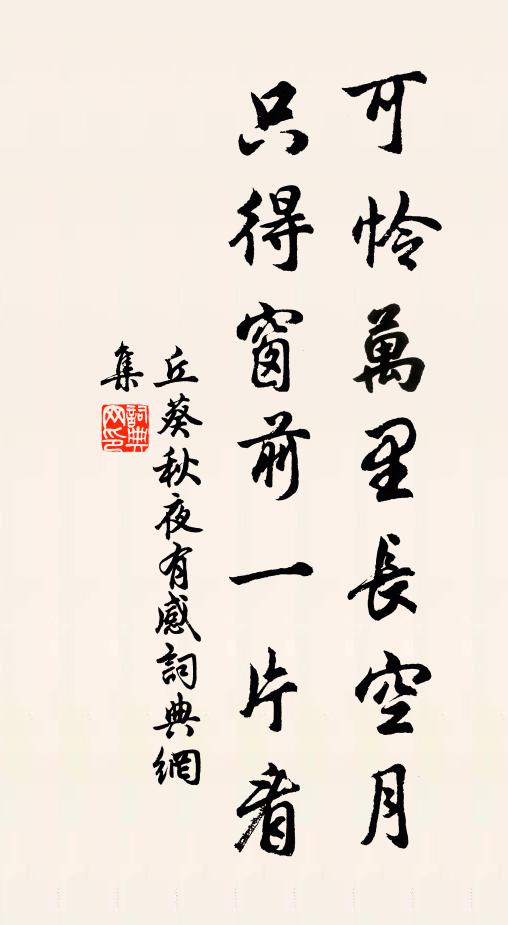 可怜萬里長空月
只得窗前一片看
丘葵秋夜有感詞典網
集
詞典網印